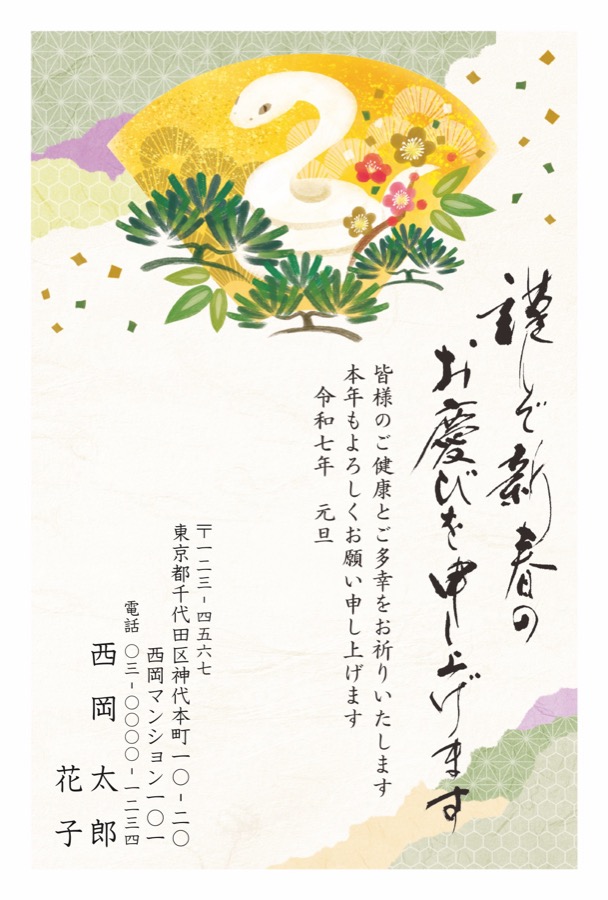 謹んで新春の
お慶びを申し上げます
皆様のご健康とご多幸をお祈りいたします
本年もよろしくお願い申し上げます
令和七年　元旦
〒一二三-四五六七
東京都千代田区神代本町一〇-二〇
西岡マンション一〇一
電話　〇三-〇〇〇〇-一二三四
西岡　太郎
花子